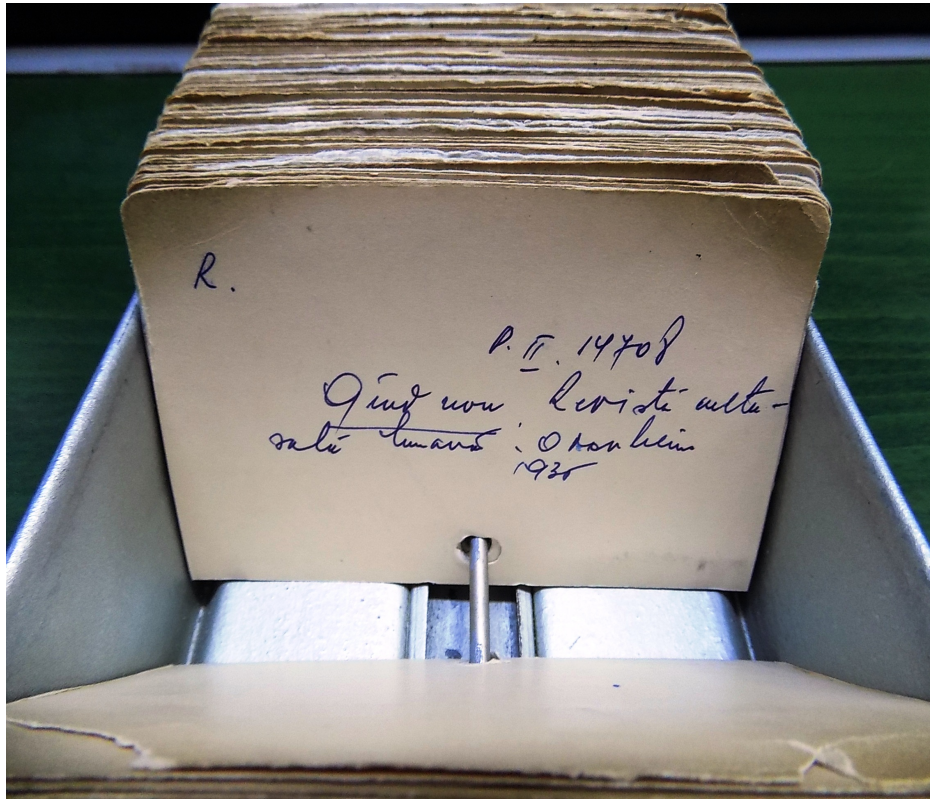 R.
P. II. 14708
Gînd nou Revistă cultu-
rală lunară :
1935